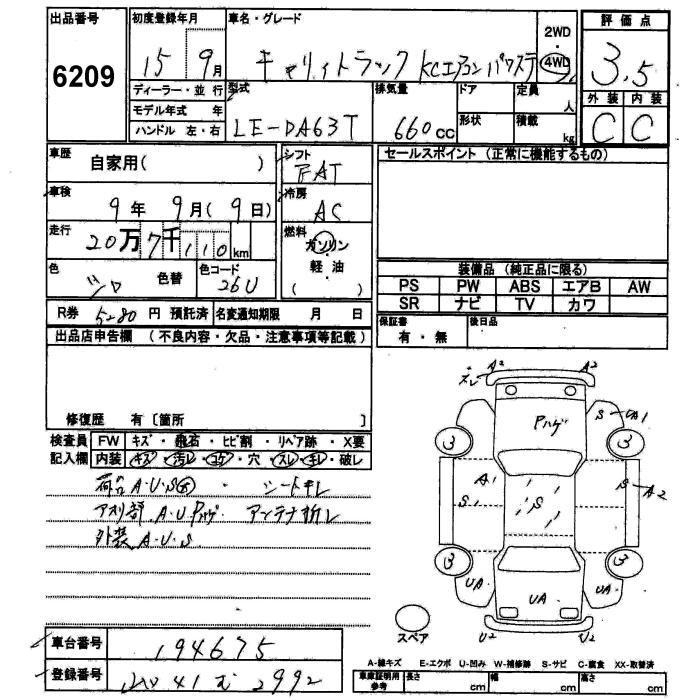 出品番号 6209
初度登録年月 15 9月
車名・グレード キャリィトラック KCエアコン パワステ
2WD 4WD
評価点 3.5
外装 C 内装 C
ディーラー・並行
モデル年式 年
ハンドル 左・右
型式 LE-DA63T
排気量 660cc
ドア 形状
定員 人
積載 kg
車歴 自家用( )
シフト FAT
セールスポイント (正常に機能するもの)
車検 9年 9月(9日)
冷房 AC
走行 20万7千110km
燃料 ガソリン 軽油 ( )
色 シロ 色替 色コード 26U
装備品 (純正品に限る)
PS PW ABS エアB AW
SR ナビ TV カワ
R券 5280 円 預託済 名変通知期限 月 日
保証書 有・無 後日品
出品店申告欄 (不良内容・欠品・注意事項等記載)
修復歴 有 [箇所 ]
検査員 FW キズ・飛石・ヒビ割・リペア跡・X要
記入欄 内装 キズ・汚レ・コゲ・穴・スレ・キレ・破レ
荷台 A.U.S大 シートキレ
アオリ部 A.U Pハゲ アンテナ折レ
外装 A.U.S
ズレ A2 A2
Pハゲ
S UA1
3 3
A1 S1 S S A2
3 3
UA UA UA
U2 U2
スペア
車台番号 194675
登録番号 41 2992
A-線キズ E-エクボ U-凹み W-補修跡 S-サビ C-腐食 XX-取替済
車庫証明用参考 長さ cm 幅 cm 高さ cm